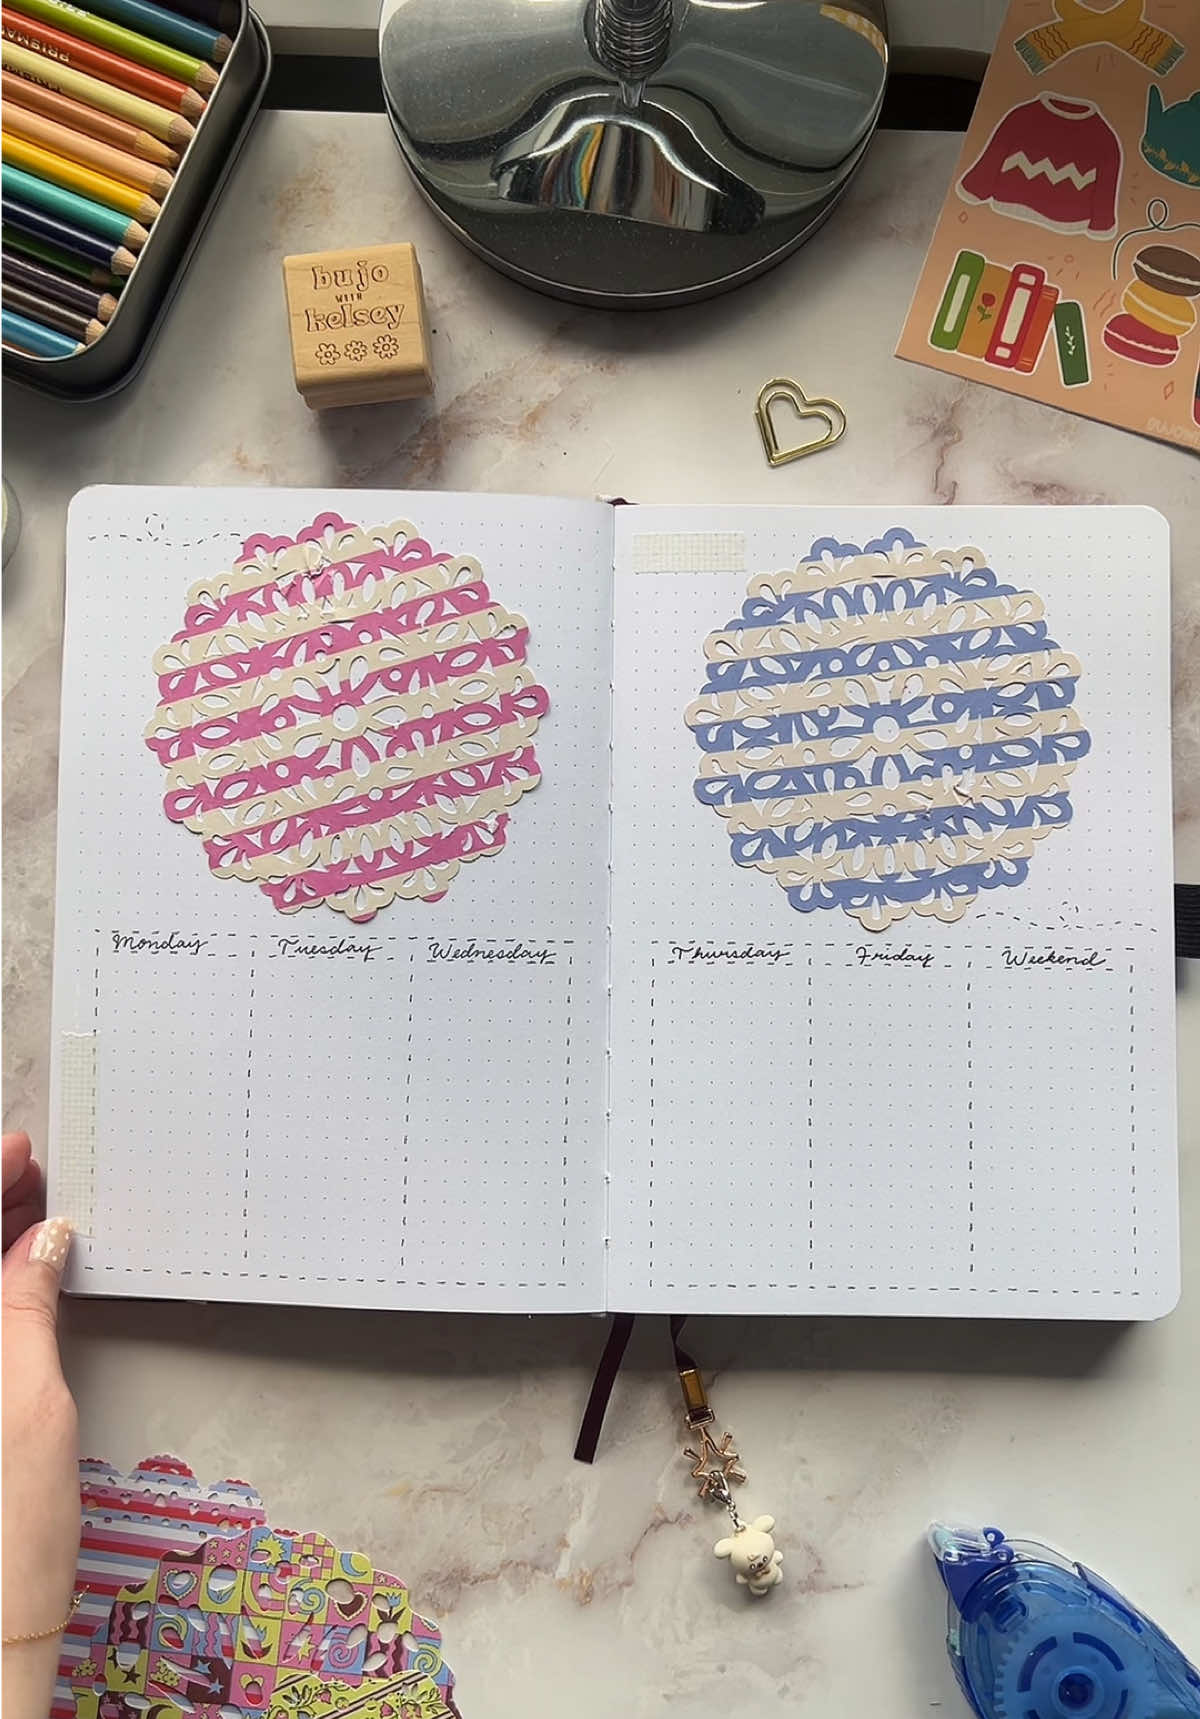 PRISMA
bujo
WITH
kelsey
Monday
Tuesday
Wednesday
Thursday
Friday
Weekend